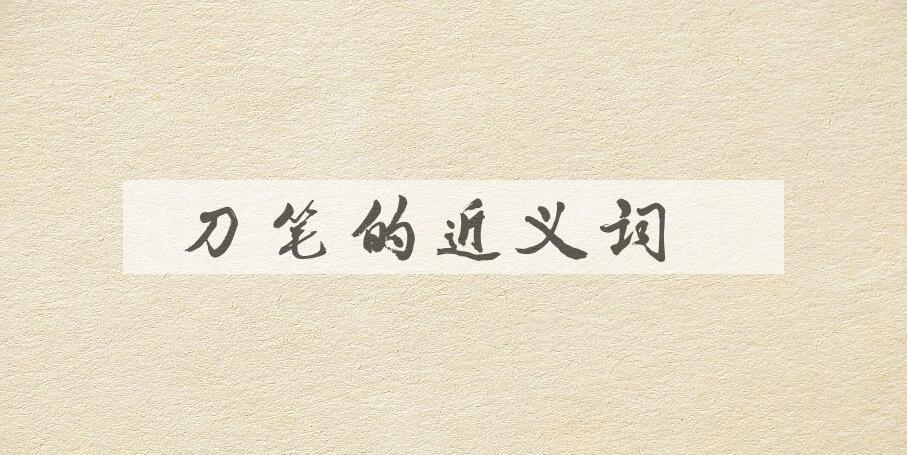 刀笔的近义词